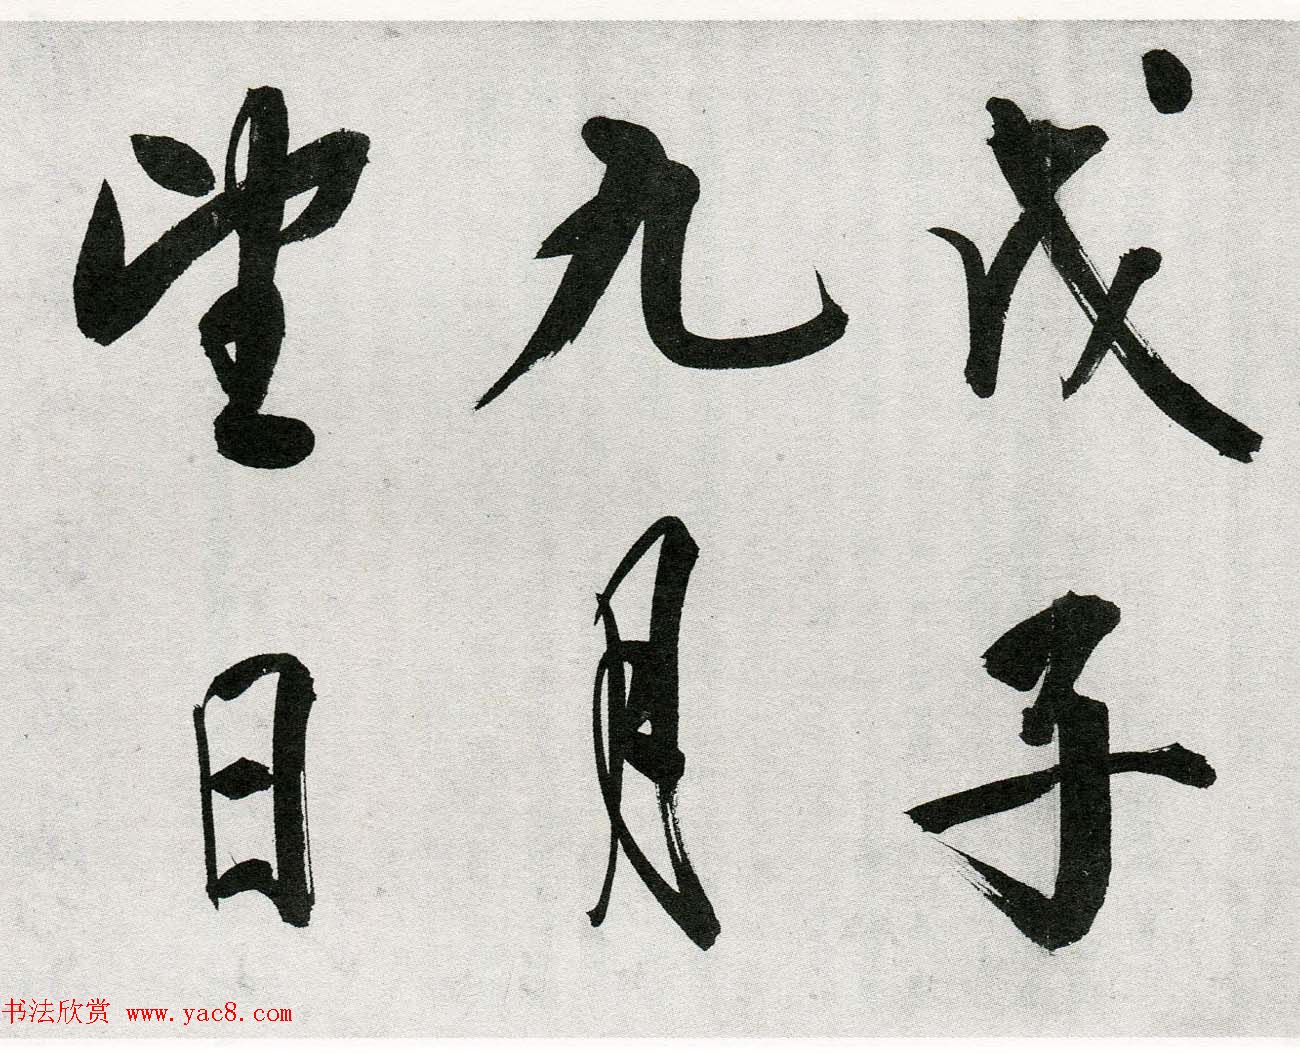 戊子
九月
望日
书法欣赏 www.yac8.com